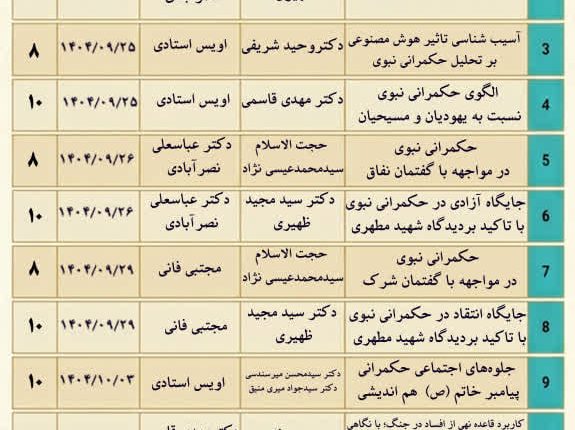 3
آسیب شناسی تاثیر هوش مصنوعی
بر تحلیل حکمرانی نبوی
دکتروحید شریفی
اویس استادی
۱۴۰۴/۰۹/۲۵
۸
4
الگوی حکمرانی نبوی
نسبت به یهودیان و مسیحیان
دکتر مهدی قاسمی
اویس استادی
۱۴۰۴/۰۹/۲۵
۱۰
5
حکمرانی نبوی
در مواجهه با گفتمان نفاق
حجت الاسلام
سیدمحمدعیسی نژاد
دکتر عباسعلی
نصرآبادی
۱۴۰۴/۰۹/۲۶
۸
6
جایگاه آزادی در حکمرانی نبوی
با تاکید بردیدگاه شهید مطهری
دکتر سید مجید
ظهیری
دکتر عباسعلی
نصرآبادی
۱۴۰۴/۰۹/۲۶
۱۰
7
حکمرانی نبوی
در مواجهه با گفتمان شرک
حجت الاسلام
سیدمحمدعیسی نژاد
مجتبی فانی
۱۴۰۴/۰۹/۲۹
۸
8
جایگاه انتقاد در حکمرانی نبوی
با تاکید بردیدگاه شهید مطهری
دکتر سید مجید
ظهیری
مجتبی فانی
۱۴۰۴/۰۹/۲۹
۱۰
9
جلوه‌های اجتماعی حکمرانی
پیامبر خاتم (ص) هم اندیشی
دکتر سیدمحسن میرسندسی
دکتر سیدجواد میری منیق
اویس استادی
۱۴۰۴/۱۰/۰۳
۱۰
کاربرد قاعده نهی از افساد در جنگ؛ با نگاهی